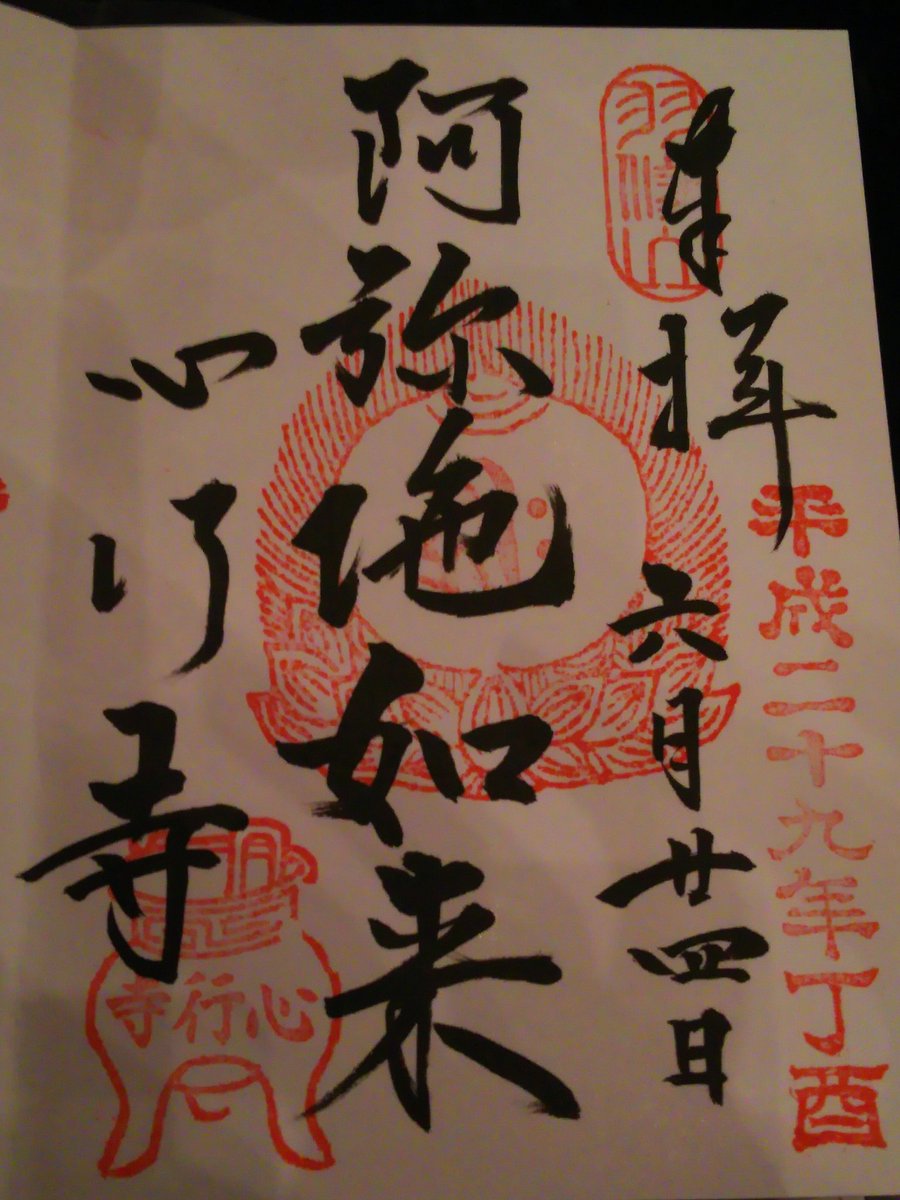 奉拝
平成二十九年丁酉
六月廿四日
阿弥陀如来
心行寺
心行寺